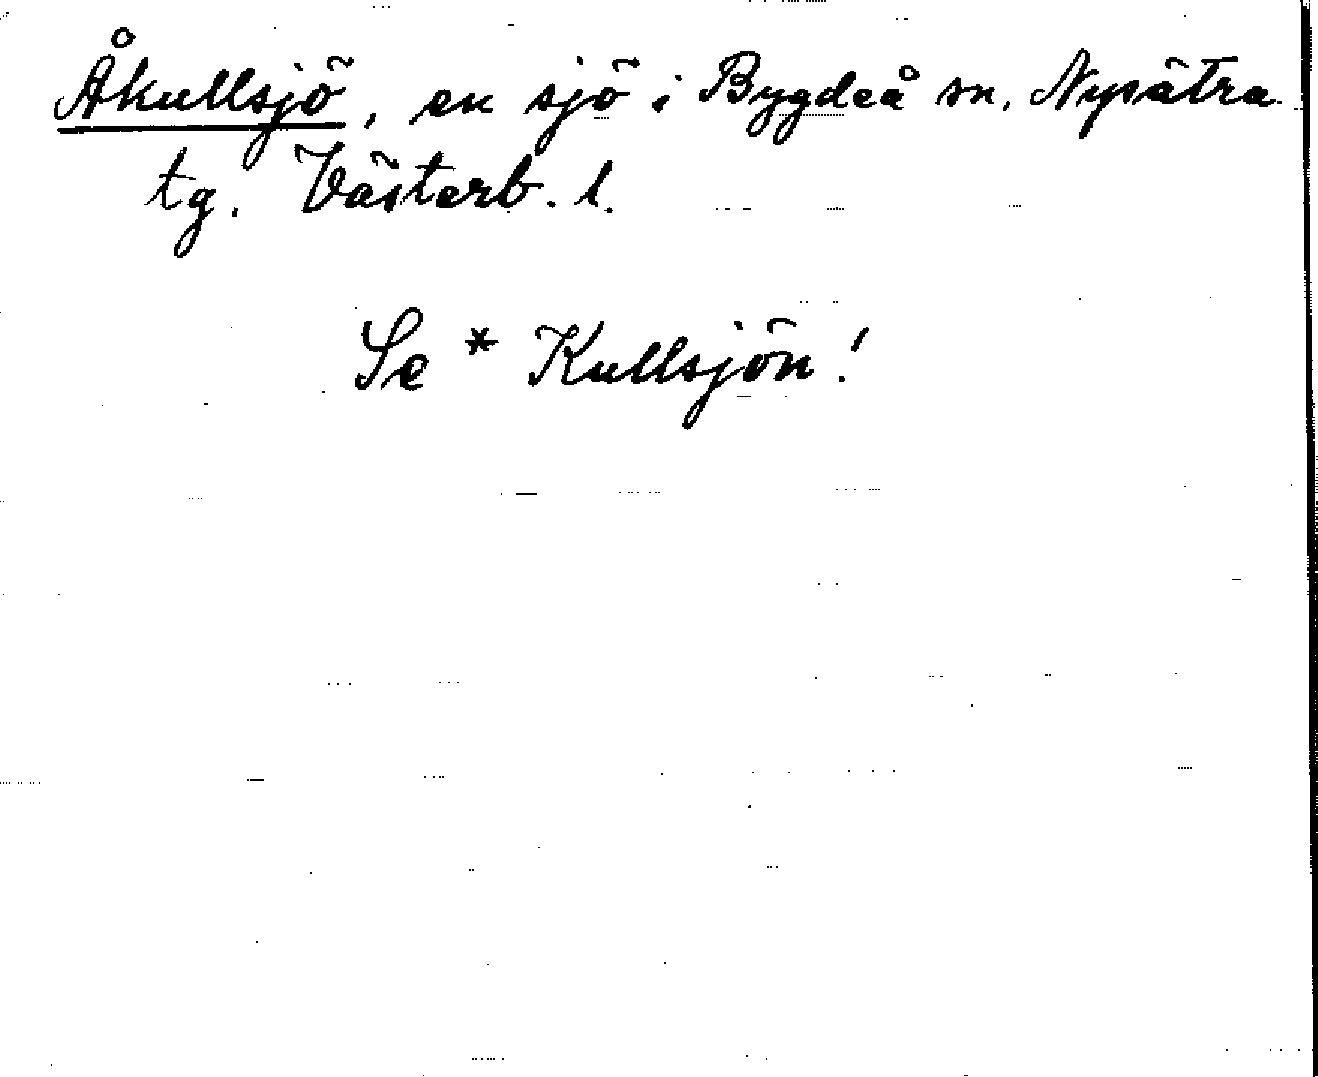 Åkullsjö, en sjö i Bygdeå sn, Nysätra
tg. Västerb. l.
Se * Kullsjön!